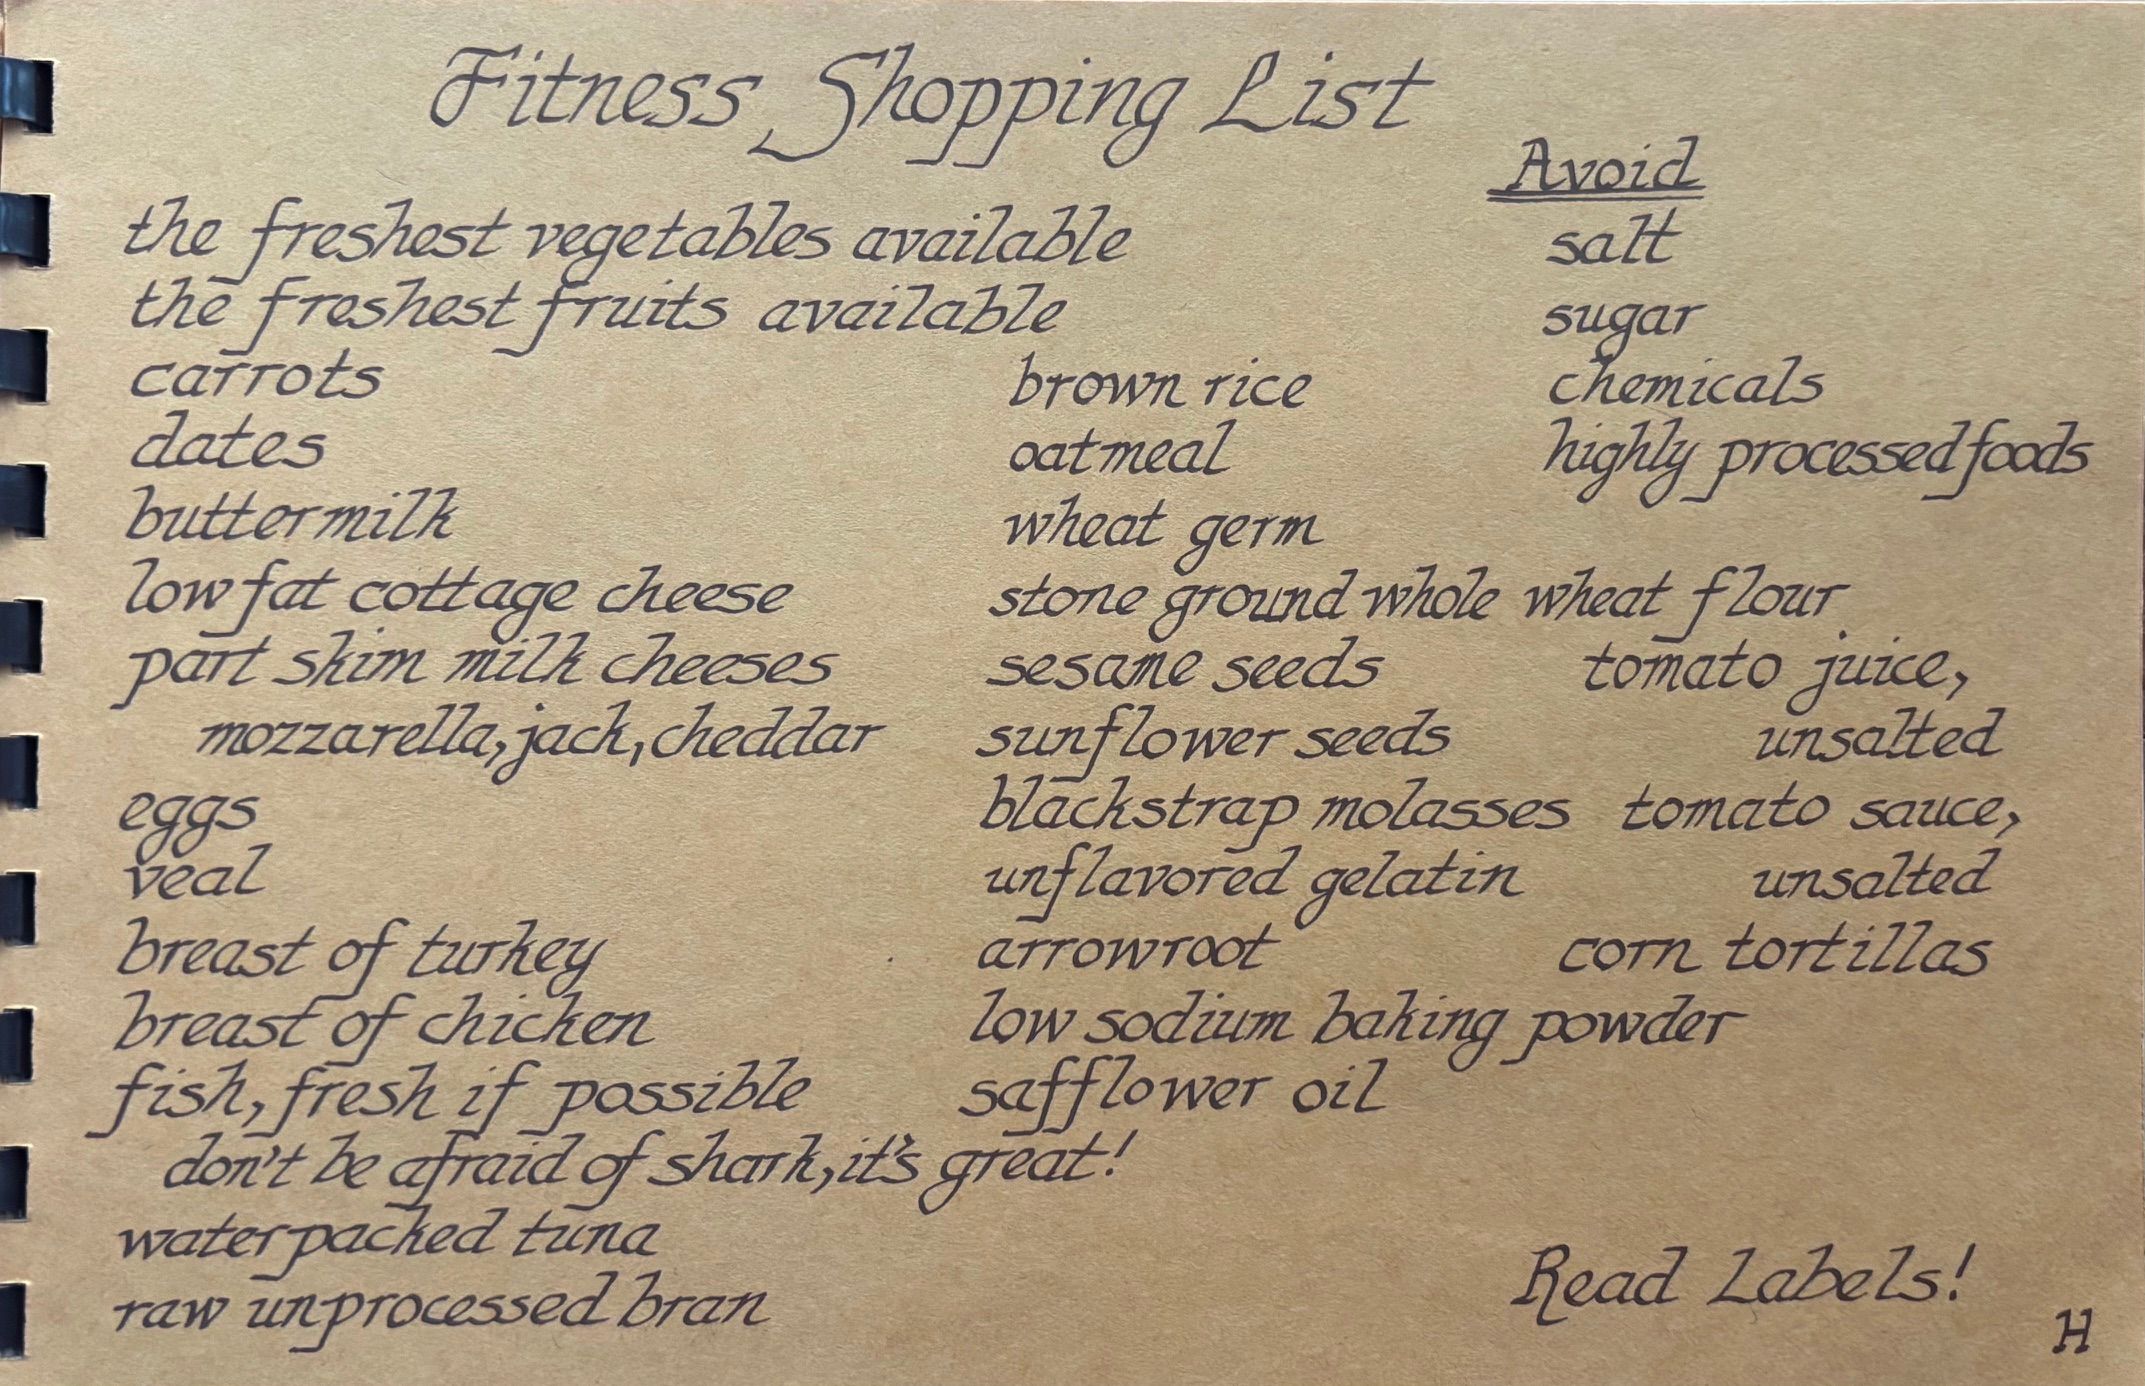 Fitness Shopping List
the freshest vegetables available
the freshest fruits available
carrots
dates
buttermilk
lowfat cottage cheese
part skim milk cheeses
mozzarella, jack, cheddar
eggs
veal
breast of turkey
breast of chicken
fish, fresh if possible
don't be afraid of shark, it's great!
water packed tuna
raw unprocessed bran
brown rice
oatmeal
wheat germ
stone ground whole wheat flour
sesame seeds
sunflower seeds
blackstrap molasses
unflavored gelatin
arrowroot
low sodium baking powder
safflower oil
Avoid
salt
sugar
chemicals
highly processed foods
tomato juice,
unsalted
tomato sauce,
unsalted
corn tortillas
Read Labels!
H